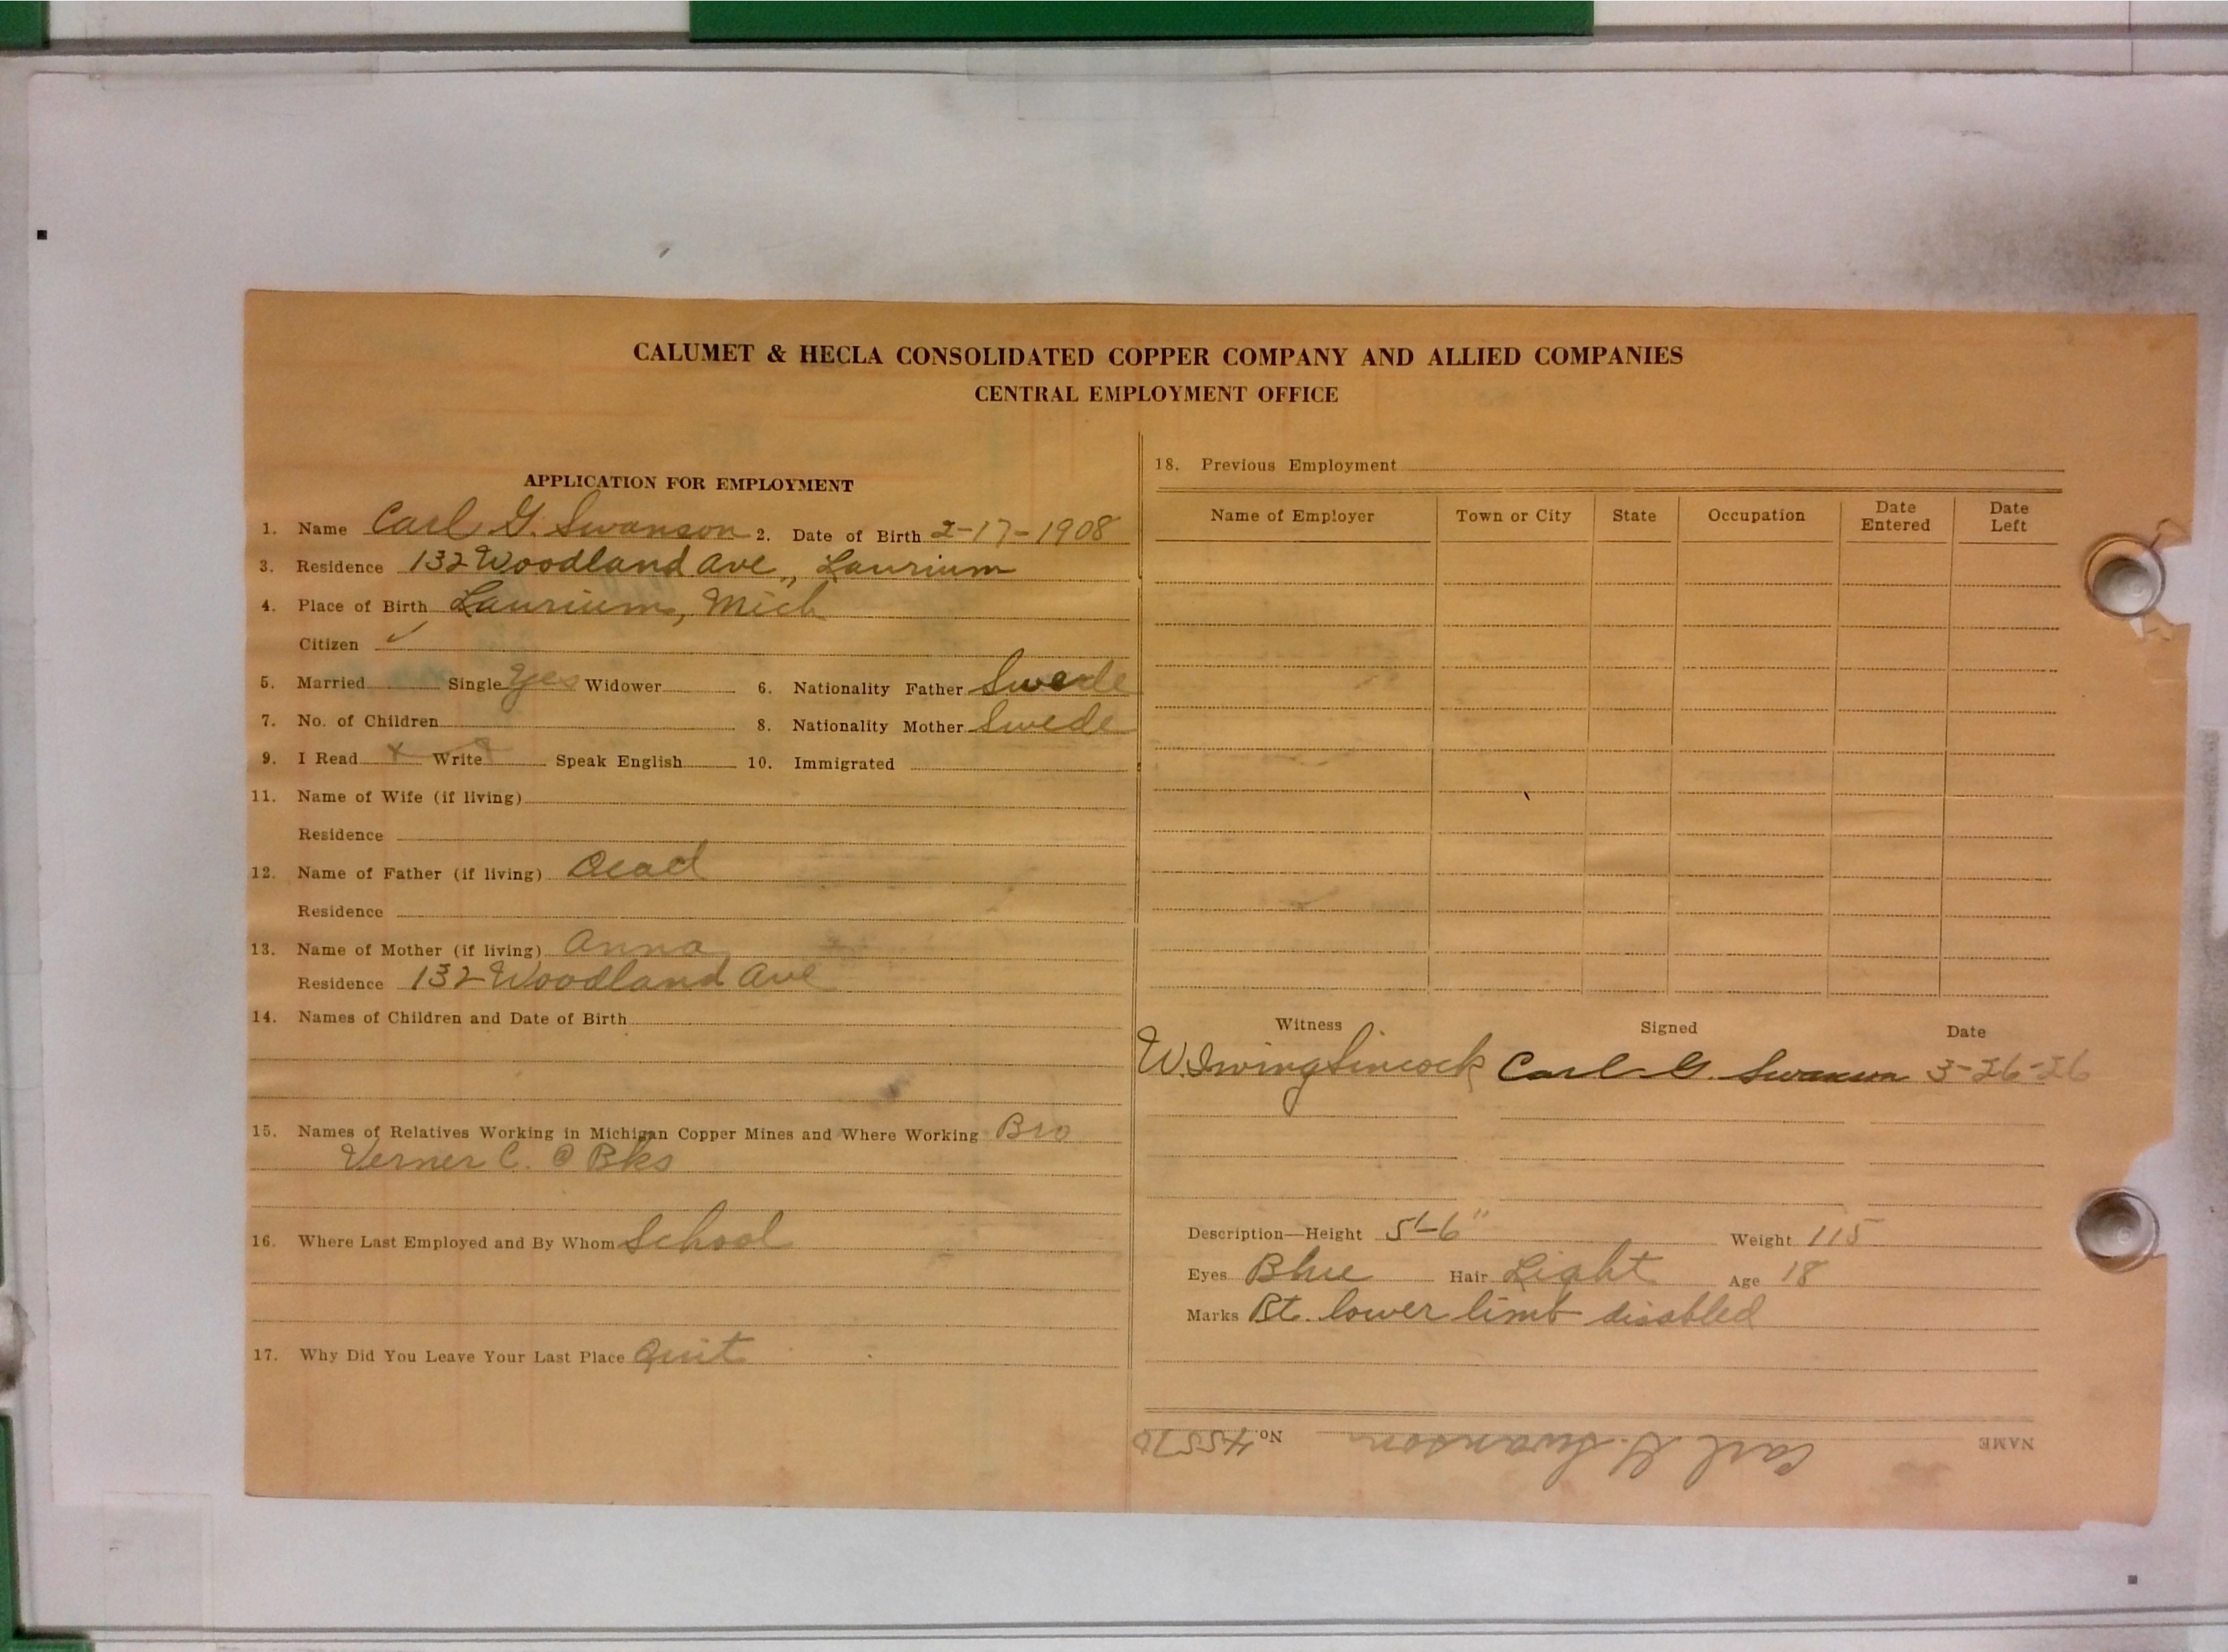 CALUMET & HECLA CONSOLIDATED COPPER COMPANY AND ALLIED COMPANIES
CENTRAL EMPLOYMENT OFFICE
APPLICATION FOR EMPLOYMENT
1. Name Carl G. Swanson 2. Date of Birth 2-17-1908
3. Residence 132 Woodland Ave., Laurium
4. Place of Birth Laurium, Mich
Citizen ✓
5. Married Single Yes Widower 6. Nationality Father Swede
7. No. of Children 8. Nationality Mother Swede
9. I Read x Write Speak English 10. Immigrated
11. Name of Wife (if living)
Residence
12. Name of Father (if living) Dead
Residence
13. Name of Mother (if living) Anna
Residence 132 Woodland Ave
14. Names of Children and Date of Birth
15. Names of Relatives Working in Michigan Copper Mines and Where Working Bro
Verner C. @ Bks
16. Where Last Employed and By Whom School
17. Why Did You Leave Your Last Place Quit
18. Previous Employment
Name of Employer Town or City State Occupation Date Entered Date Left
Witness Signed Date
W. Irving Sincock Carl G. Swanson 3-26-26
Description—Height 5'-6" Weight 115
Eyes Blue Hair Light Age 18
Marks Rt. lower limb disabled
NAME Carl G. Swanson No. 45570